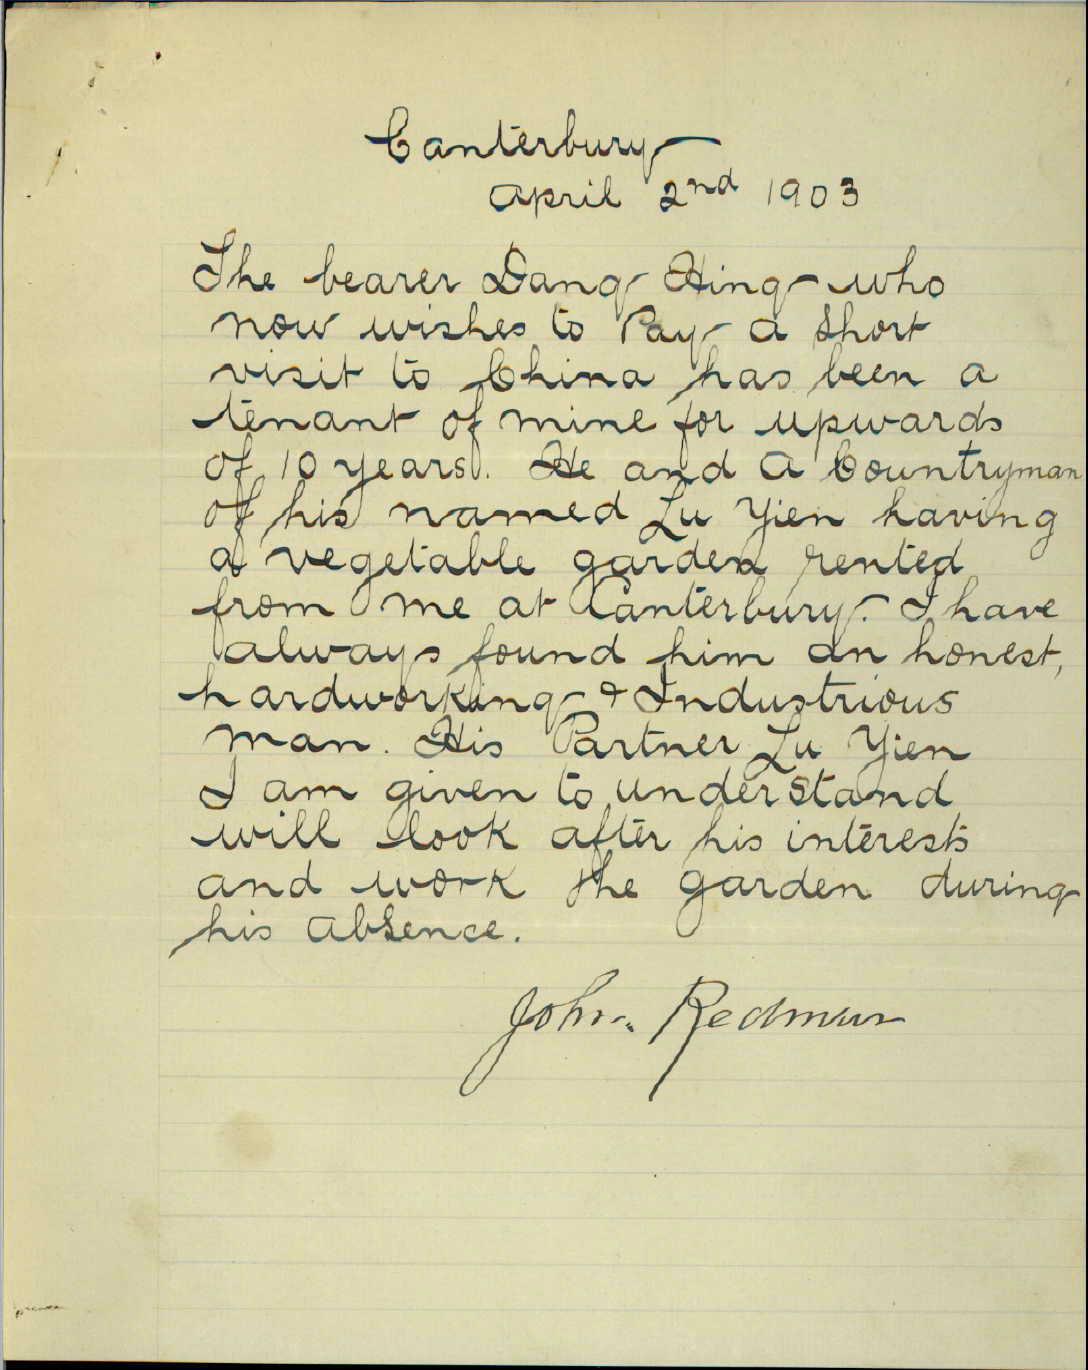 Canterbury
April 2nd 1903
The bearer Dang Hing who
now wishes to Pay a Short
visit to China has been a
tenant of mine for upwards
of 10 years. He and a Countryman
of his named Lu Yien having
a vegetable garden rented
from me at Canterbury. I have
always found him an honest,
hardworking & Industrious
man. His Partner Lu Yien
I am given to understand
will look after his interests
and work the garden during
his absence.
John Redman